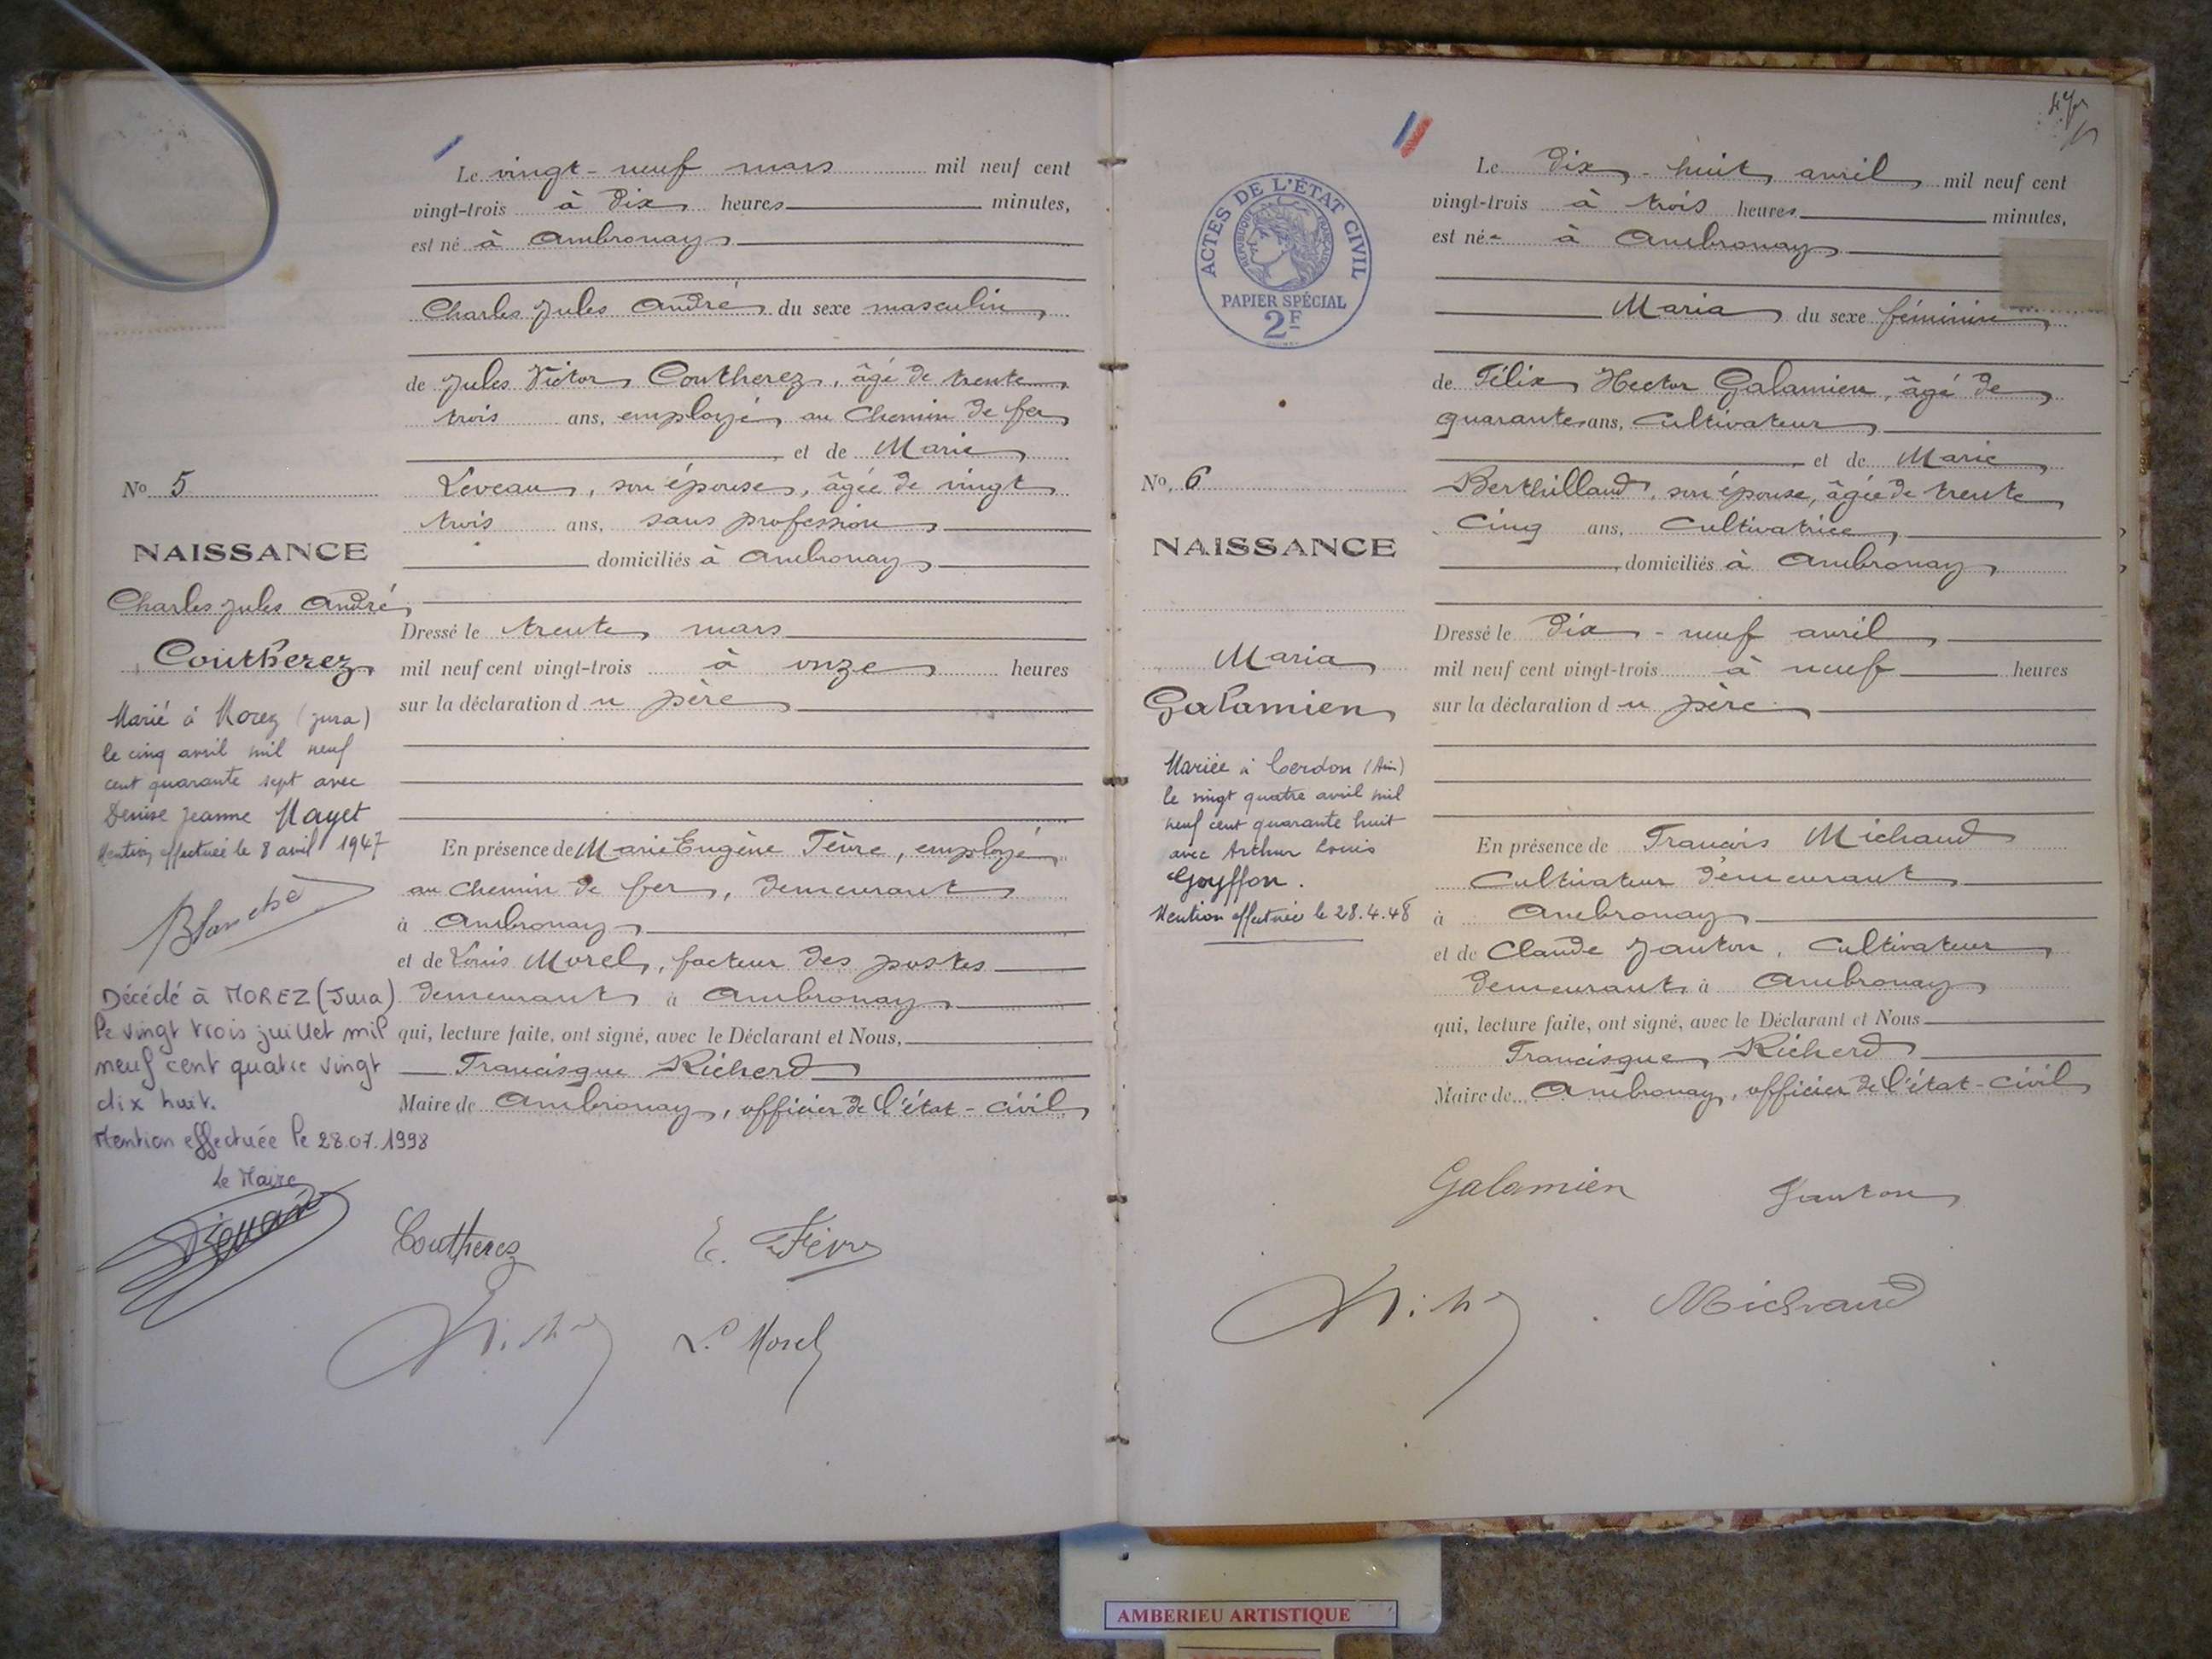 Le vingt-neuf mars mil neuf cent
vingt-trois à dix heures minutes,
est né à Ambronay
Charles Jules André du sexe masculin
de Jules Victor Coutherez, âgé de trente
trois ans, employé au Chemin de fer
et de Marie
Leveau, son épouse, âgée de vingt
trois ans, sans profession
domiciliés à Ambronay
Dressé le trente mars
mil neuf cent vingt-trois à onze heures
sur la déclaration du père
En présence de Marie Eugène Fèvre, employé
au Chemin de fer, demeurant
à Ambronay
et de Louis Morel, facteur des postes
demeurant à Ambronay
qui, lecture faite, ont signé, avec le Déclarant et Nous,
Francisque Richerd
Maire de Ambronay, officier de l'état-civil
Coutherez E. Fèvre
L. Morel
No 5
NAISSANCE
Charles Jules André
Coutherez
Marié à Morez (Jura)
le cinq avril mil neuf
cent quarante sept avec
Denise Jeanne Mayet
Mention effectuée le 8 avril 1947
Blanche
Décédé à MOREZ (Jura)
le vingt trois juillet mil
neuf cent quatre vingt
dix huit.
Mention effectuée le 28.07.1998
Le Maire
ACTES DE L'ÉTAT CIVIL
REPUBLIQUE FRANÇAISE
PAPIER SPÉCIAL
2F
Le dix-huit avril mil neuf cent
vingt-trois à trois heures minutes,
est née à Ambronay
Maria du sexe féminin
de Félix Hector Galamien, âgé de
quarante ans, Cultivateur
et de Marie
Berthilland, son épouse, âgée de trente
cinq ans, Cultivatrice,
domiciliés à Ambronay
Dressé le dix-neuf avril
mil neuf cent vingt-trois à neuf heures
sur la déclaration du père
En présence de Francis Michaud
Cultivateur demeurant
à Ambronay
et de Claude Janton, Cultivateur
demeurant à Ambronay
qui, lecture faite, ont signé, avec le Déclarant et Nous
Francisque Richerd
Maire de Ambronay, officier de l'état-civil
Galamien Janton
Michaud
No. 6
NAISSANCE
Maria
Galamien
Mariée à Cerdon (Ain)
le vingt quatre avril mil
neuf cent quarante huit
avec Arthur Louis
Goyffon.
Mention effectuée le 28.4.48
AMBERIEU ARTISTIQUE